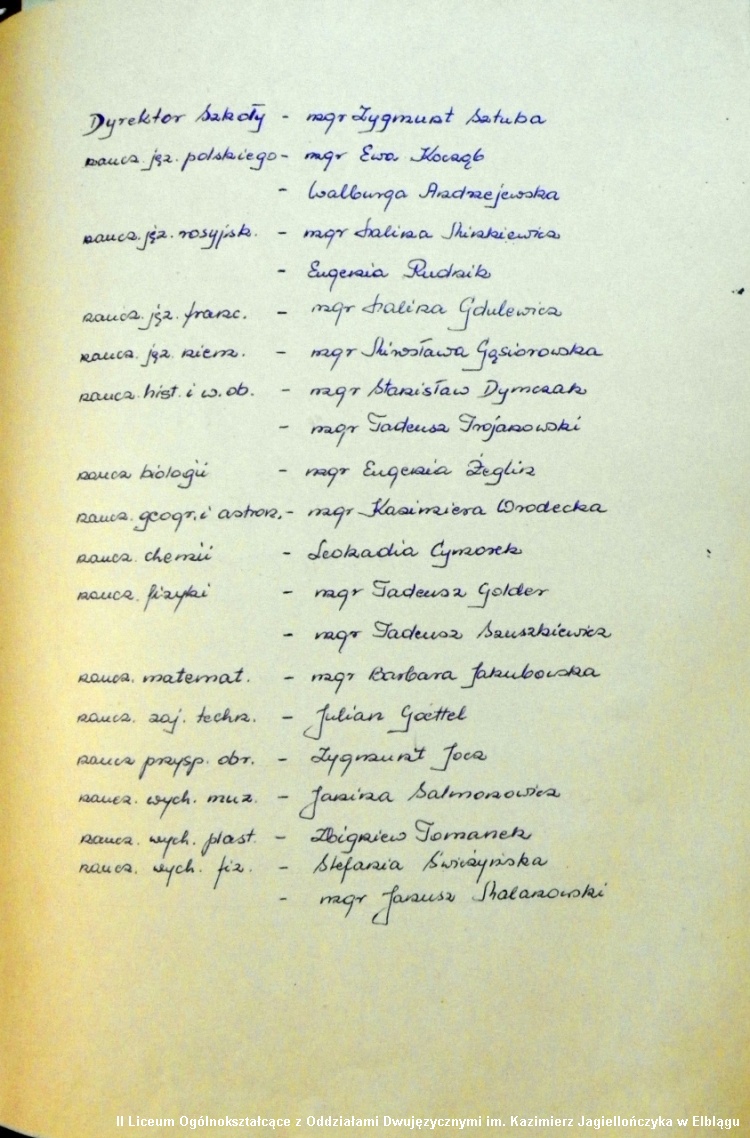 Dyrektor Szkoły - mgr Zygmunt Sztuba
naucz. jęz. polskiego - mgr Ewa Kocząb
- Walburga Andrzejewska
naucz. jęz. rosyjsk. - mgr Halina Minkiewicz
- Eugenia Rudnik
naucz. jęz. franc. - mgr Halina Gdulewicz
naucz. jęz. niem. - mgr Mirosława Gąsiorowska
naucz. hist. i w. ob. - mgr Stanisław Dymczak
- mgr Tadeusz Trojanowski
naucz biologii - mgr Eugenia Żeglin
naucz. geogr. i astron. - mgr Kazimiera Wrodecka
naucz. chemii - Leokadia Cymorek
naucz. fizyki - mgr Tadeusz Golder
- mgr Tadeusz Szuszkiewicz
naucz. matemat. - mgr Barbara Jakubowska
naucz. zaj. techn. - Julian Goettel
naucz przysp. obr. - Zygmunt Jocz
naucz. wych. muz. - Janina Salmonowicz
naucz. wych. plast. - Zbigniew Tomanek
naucz. wych. fiz. - Stefania Świeżyńska
- mgr Janusz Malanowski
II Liceum Ogólnokształcące z Oddziałami Dwujęzycznymi im. Kazimierz Jagiellończyka w Elblągu